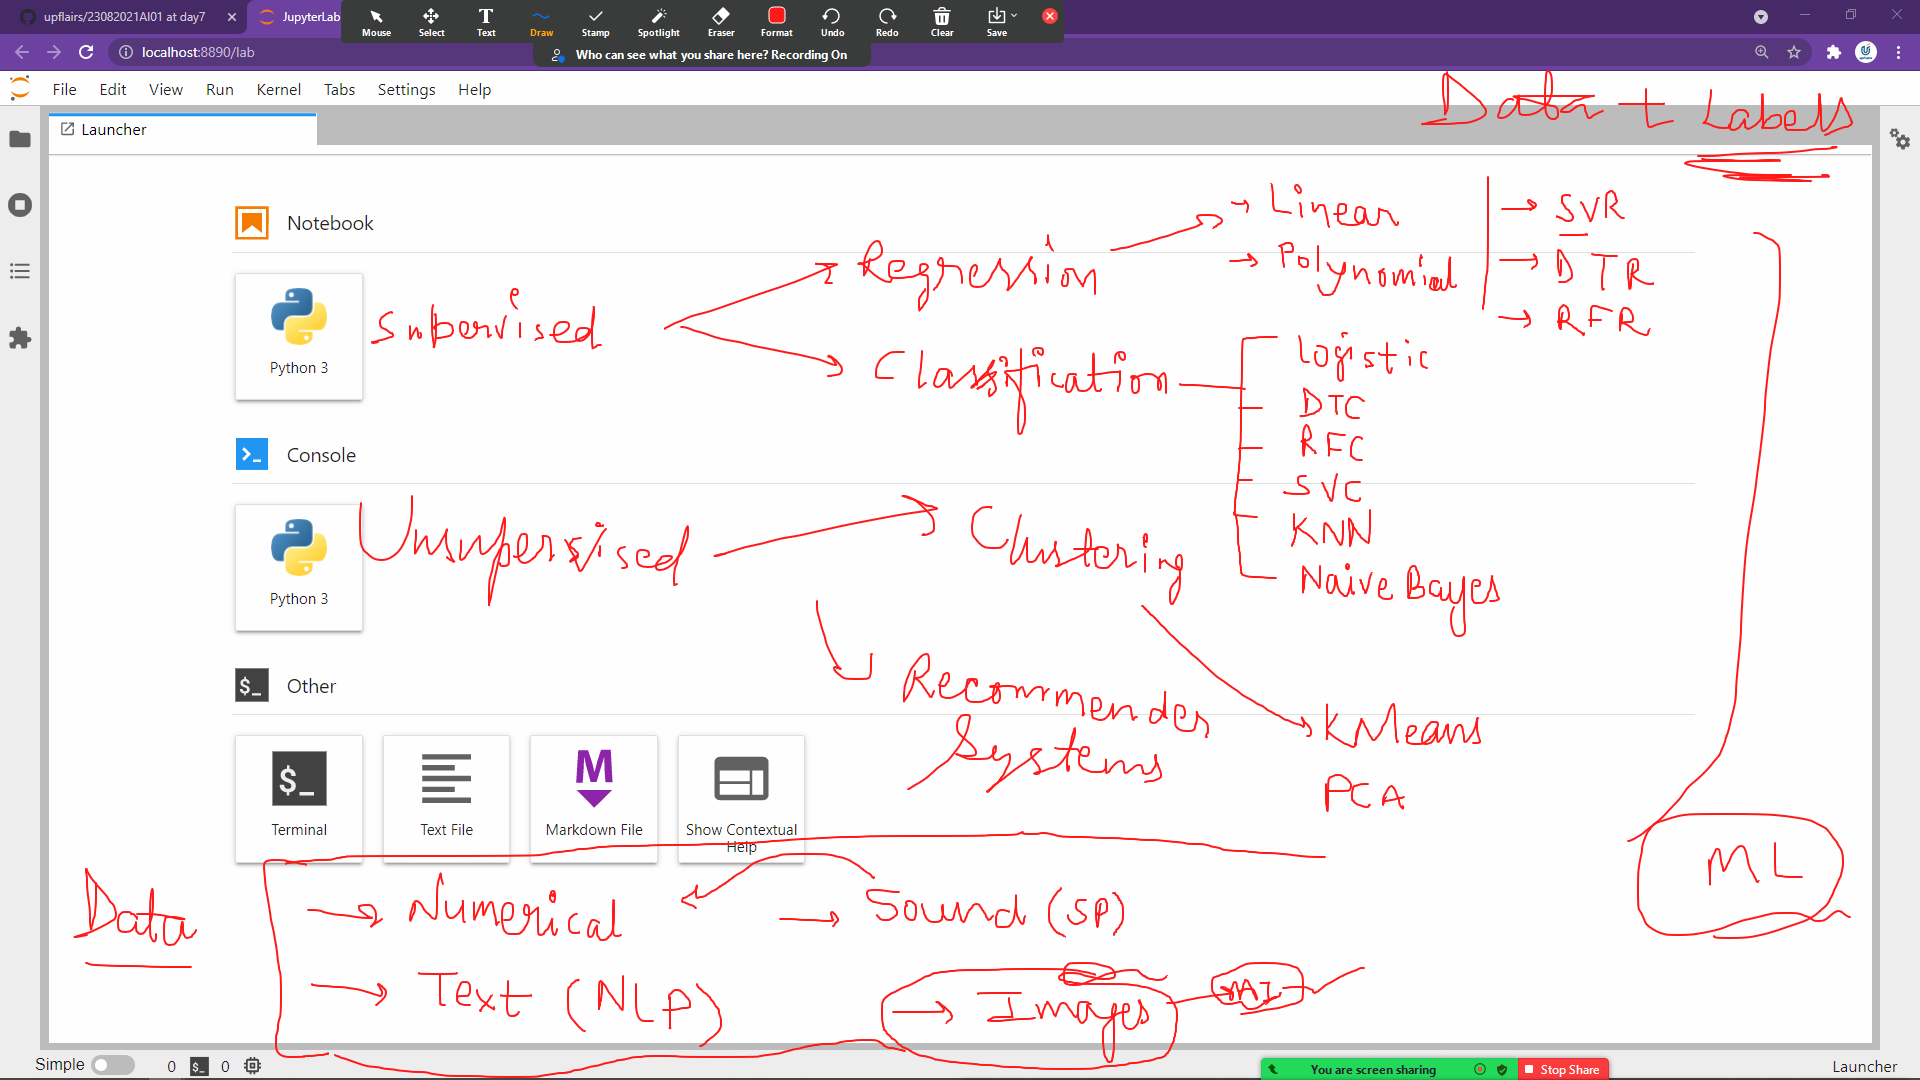 upflairs/23082021AI01 at day7
JupyterLab
Mouse
Select
Text
Draw
Stamp
Spotlight
Eraser
Format
Undo
Redo
Clear
Save
Who can see what you share here? Recording On
localhost:8890/lab
File Edit View Run Kernel Tabs Settings Help
Launcher
Data + Labels
Notebook
Python 3
Supervised
Regression
Linear
Polynomial
SVR
DTR
RFR
Classification
Logistic
DTC
RFC
SVC
KNN
Naive Bayes
Console
Python 3
Unsupervised
Clustering
KMeans
PCA
Recommender
Systems
Other
$_
Terminal
Text File
Markdown File
Show Contextual
Help
ML
Data
Numerical
Sound (SP)
Text (NLP)
Images
AI
Simple
0
$_
0
You are screen sharing
Stop Share
Launcher